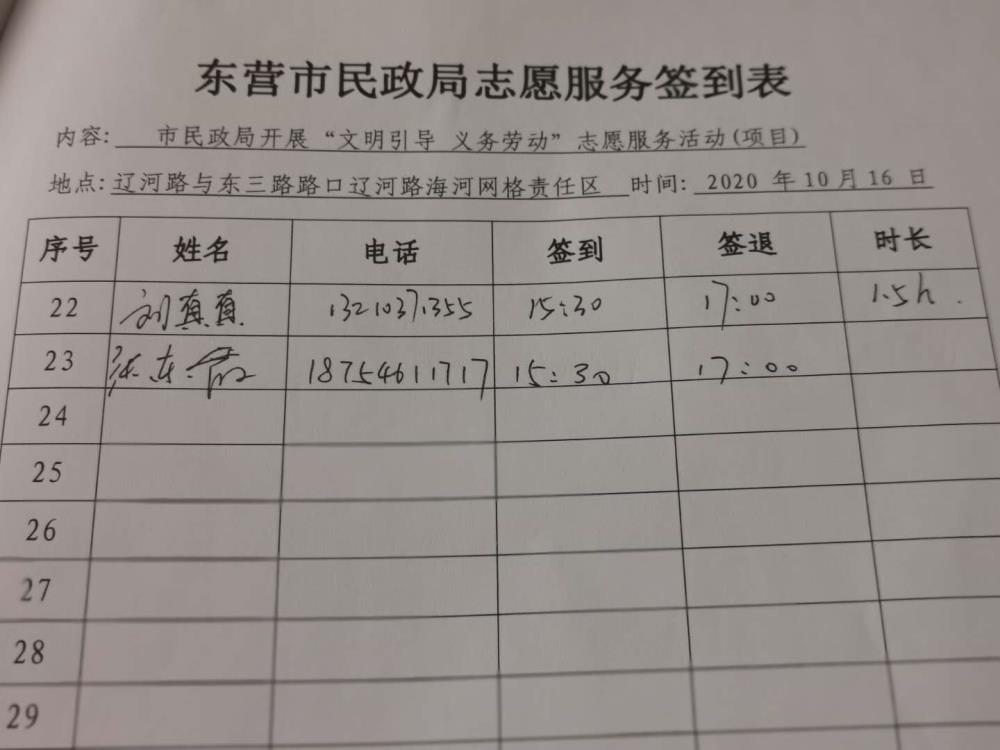 东营市民政局志愿服务签到表
内容: 市民政局开展“文明引导 义务劳动”志愿服务活动(项目)
地点: 辽河路与东三路路口辽河路海河网格责任区 时间: 2020 年 10 月 16 日
序号 姓名 电话 签到 签退 时长
22 刘真真 13210371355 15:30 17:00 1.5h.
23 张东霞 18754611717 15:30 17:00
24
25
26
27
28
29